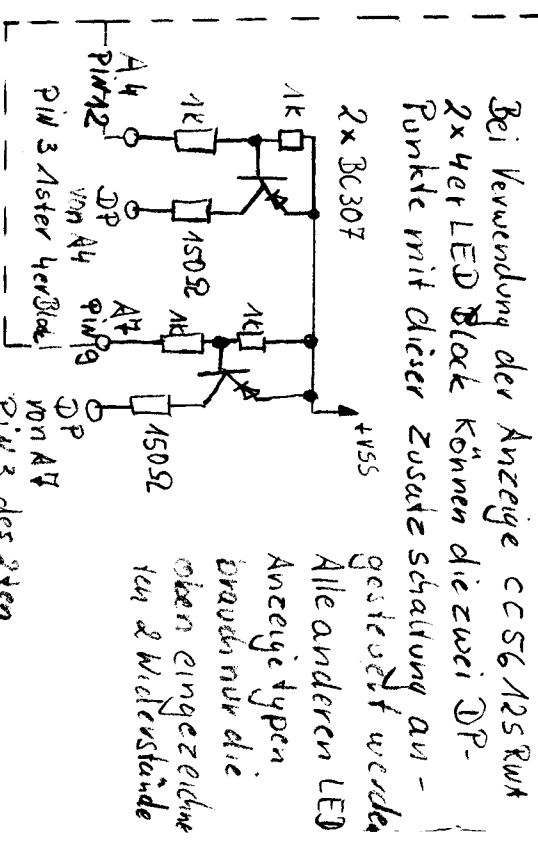 Bei Verwendung der Anzeige CC56/12SRWA
2x 4er LED Block können die zwei DP-
Punkte mit dieser Zusatzschaltung an-
gesteuert werden
Alle anderen LED
Anzeigetypen
brauch nur die
oben eingezeichne
ten 2 Widerstände
2x BC307
+VSS
1K
1K
A4
PIN12
150Ω
DP
von A4
PIN 3 1ster 4erBlock
1K
1K
A7
PIN 9
150Ω
DP
von A7
PIN 3 des 2ten